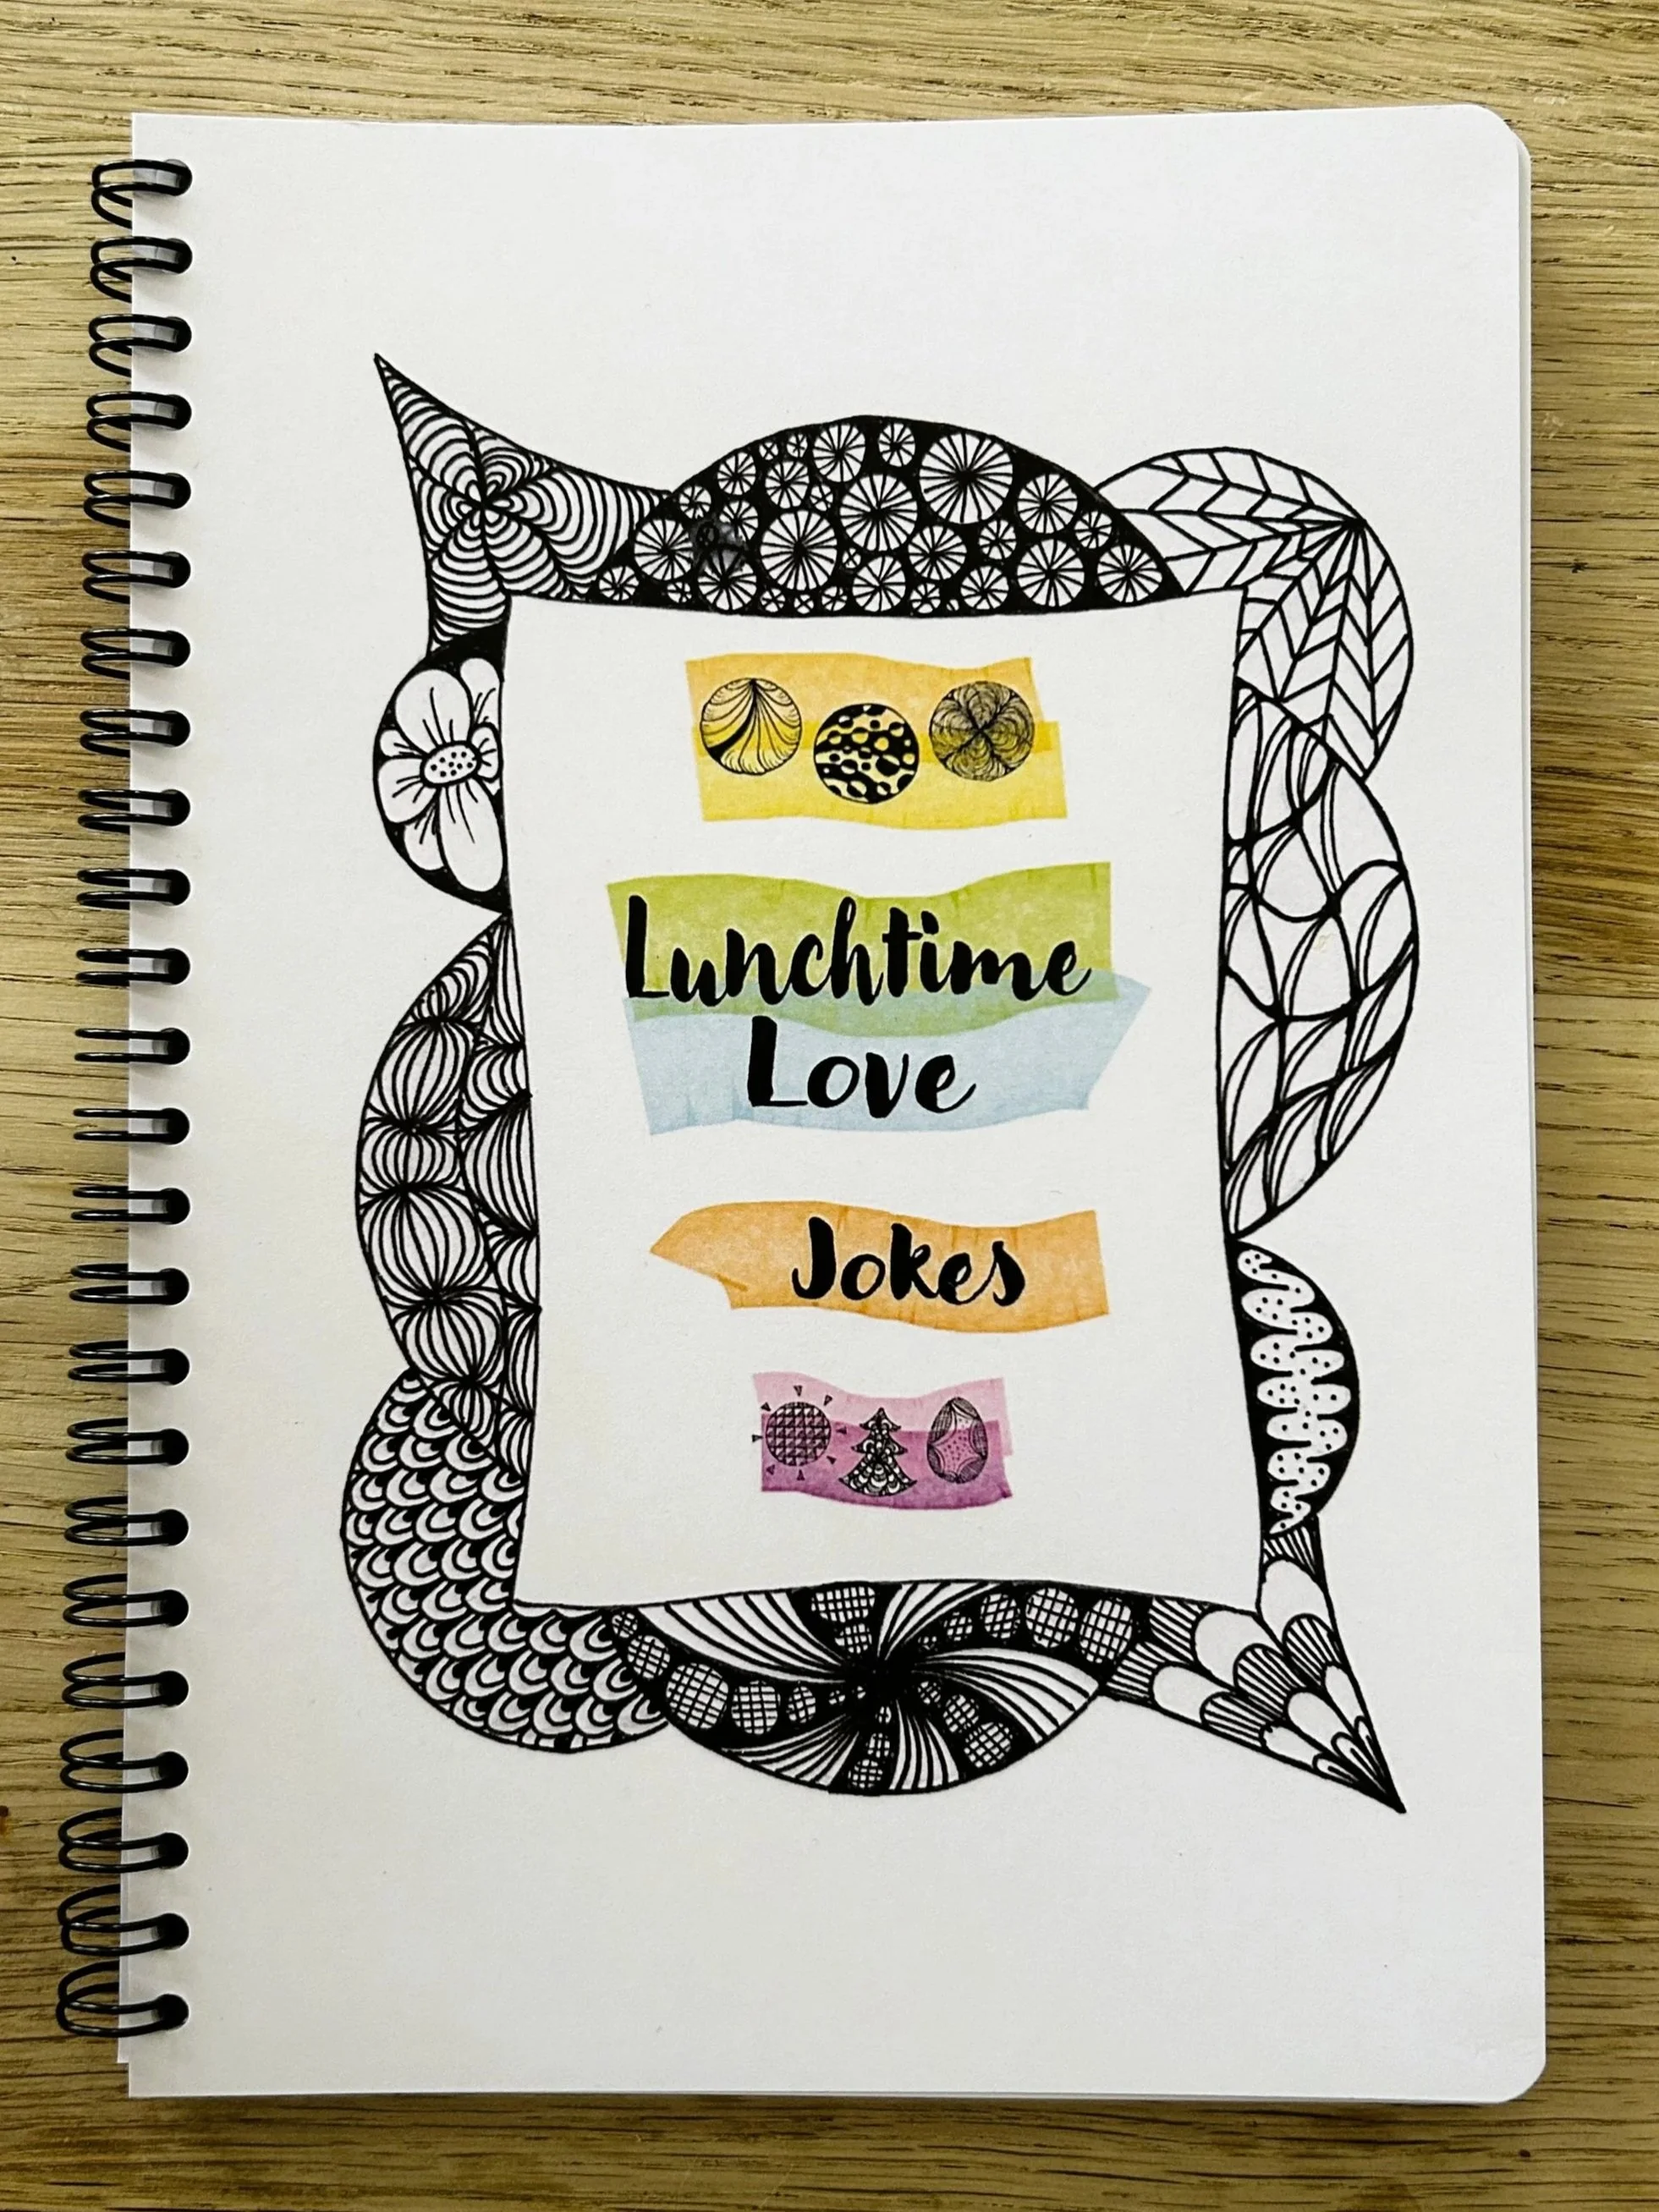 Lunchtime
Love
Jokes